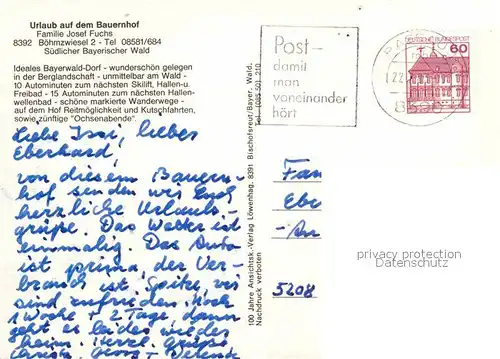 Urlaub auf dem Bauernhof
Familie Josef Fuchs
8392 Böhmzwiesel 2 - Tel 08581/684
Südlicher Bayerischer Wald
Ideales Bayerwald-Dorf - wunderschön gelegen
in der Berglandschaft - unmittelbar am Wald -
10 Autominuten zum nächsten Skilift, Hallen-u.
Freibad - 15 Autominuten zum nächsten Hallen-
wellenbad - schöne markierte Wanderwege -
auf dem Hof Reitmöglichkeit und Kutschfahrten,
sowie zünftige "Ochsenabende".
Liebe Issi, lieber
Eberhard,
von diesem Bauern-
hof senden wir Euch
herzliche Urlaubs-
grüße. Das Wetter ist
einmalig. Das Auto
ist prima, der Ver-
brauch ist Spitze, wir
sind zufrieden. Noch
1 Woche + 2 Tage, dann
geht es leider wieder
heim. Herzl. Grüße
Christa, Georg +
100 Jahre Ansichtsk.-Verlag Löwenhag, 8391 Bischofsreut/Bayer. Wald.
Tel. (085 50) 210
Nachdruck verboten
Post-
damit
man
voneinander
hört
DEUTSCHE BUNDESPOST
60
Fam
Ebe
An
5208
privacy protection
Datenschutz